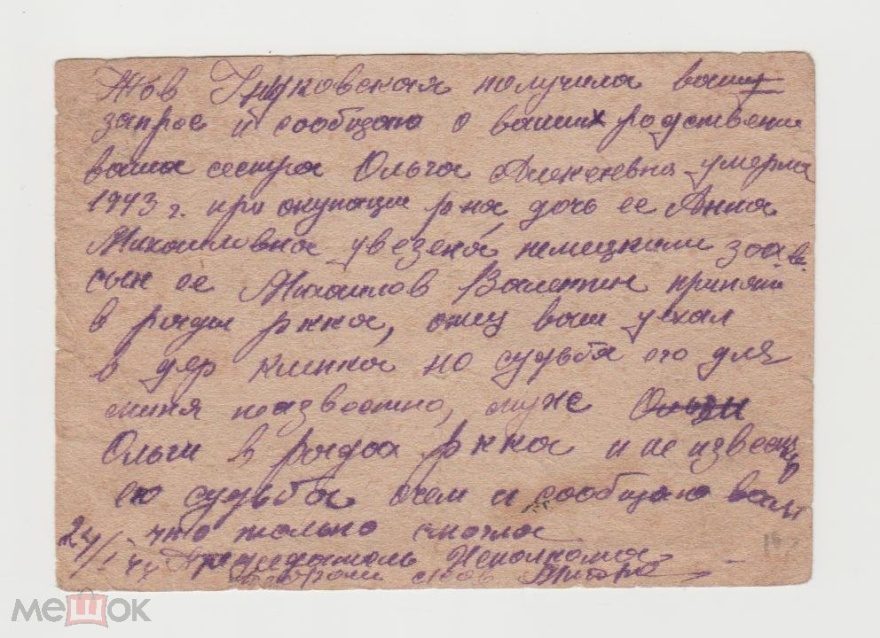 Тов Гнуковская получила вашу
запрос и сообщаю о ваших родствени
ваша сестра Ольга Алексевна умерла
1943 г. при окупации р на, дочь ее Анна
Михаиловна увезена немецкими
сын ее Михаилов Валентин принят
в ряды ркка, отец ваш уехал
в дер но судьба его для
миня неизвестно, муж Ользи
Ольги в рядах ркка и не извесно
его судьба очем и сообщаю вам
что только смогла
24/I 44 Председатель Исполкома
МеШок